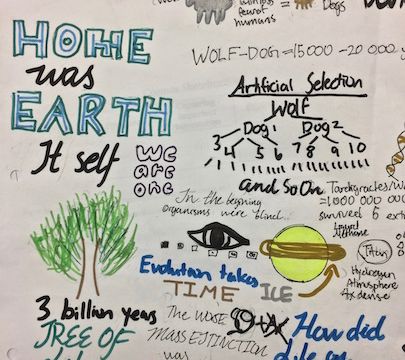 HOME
was
EARTH
It self
we
are
one
fewer
humans
=
Dogs
WOLF-DOG = 15000 - 20 000 y
Artificial Selection
Wolf
Dog1 Dog2
3 4 5 6 7 8 9 10
and So On
In the begining
organisms were blind...
Tardegracles/W
=1,000 000 000
survived 5 exti
Liquid
Methane
Titan
Hydrogen
Atmosphere
4x dense
Evolution takes
TIME
ICE
3 billion years
TREE OF
The WORSE
MASS EXTINCTION
was
How did